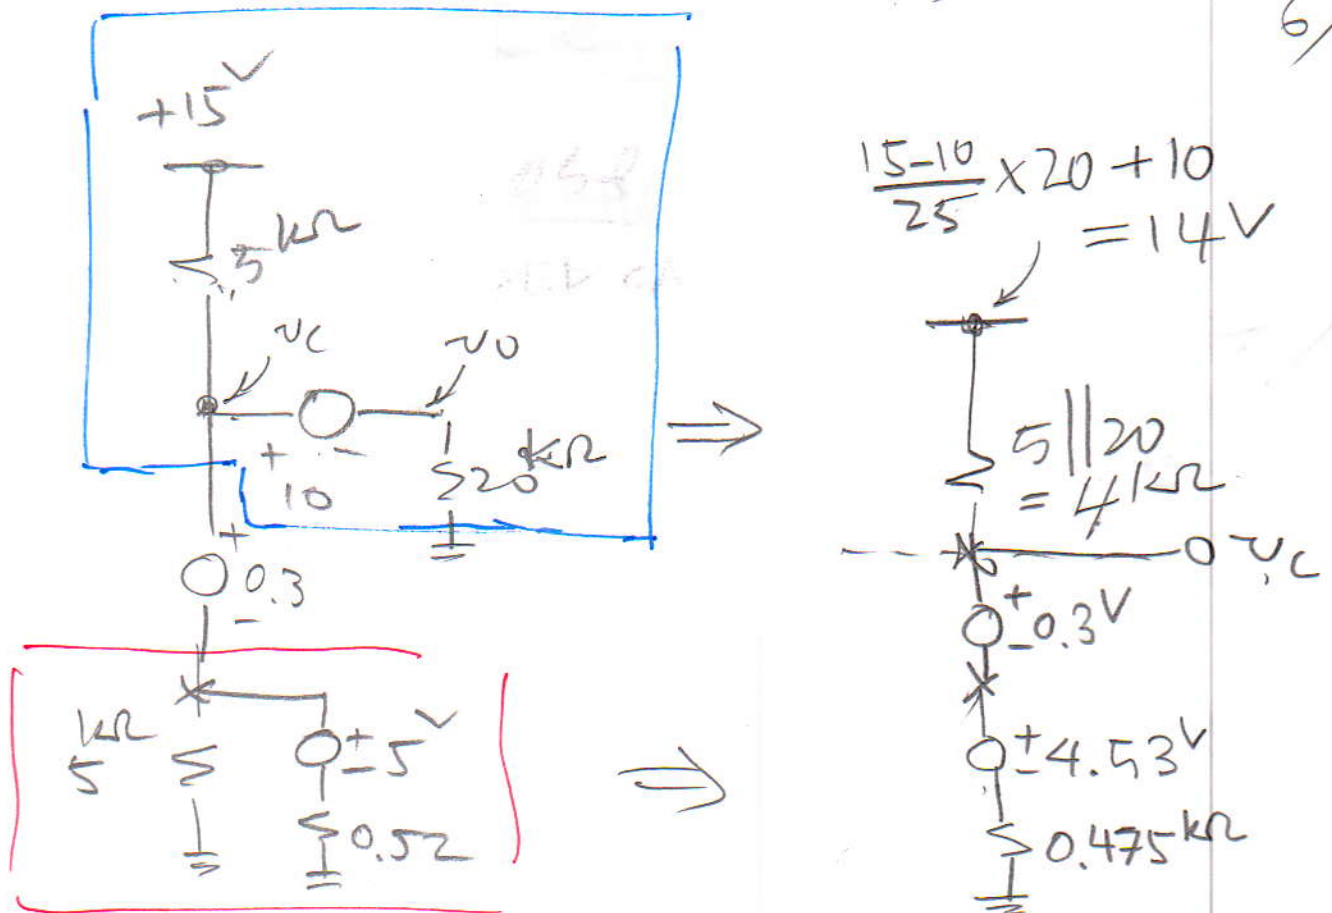 6/
+15 V
5 kΩ
vc
vo
+ -
10
20 kΩ
+
0.3
-
5 kΩ
+
- 5 V
0.52
15-10/25 × 20 + 10
= 14 V
⇒
5 || 20
= 4 kΩ
vc
+
- 0.3 V
⇒
+
- 4.53 V
0.475 kΩ